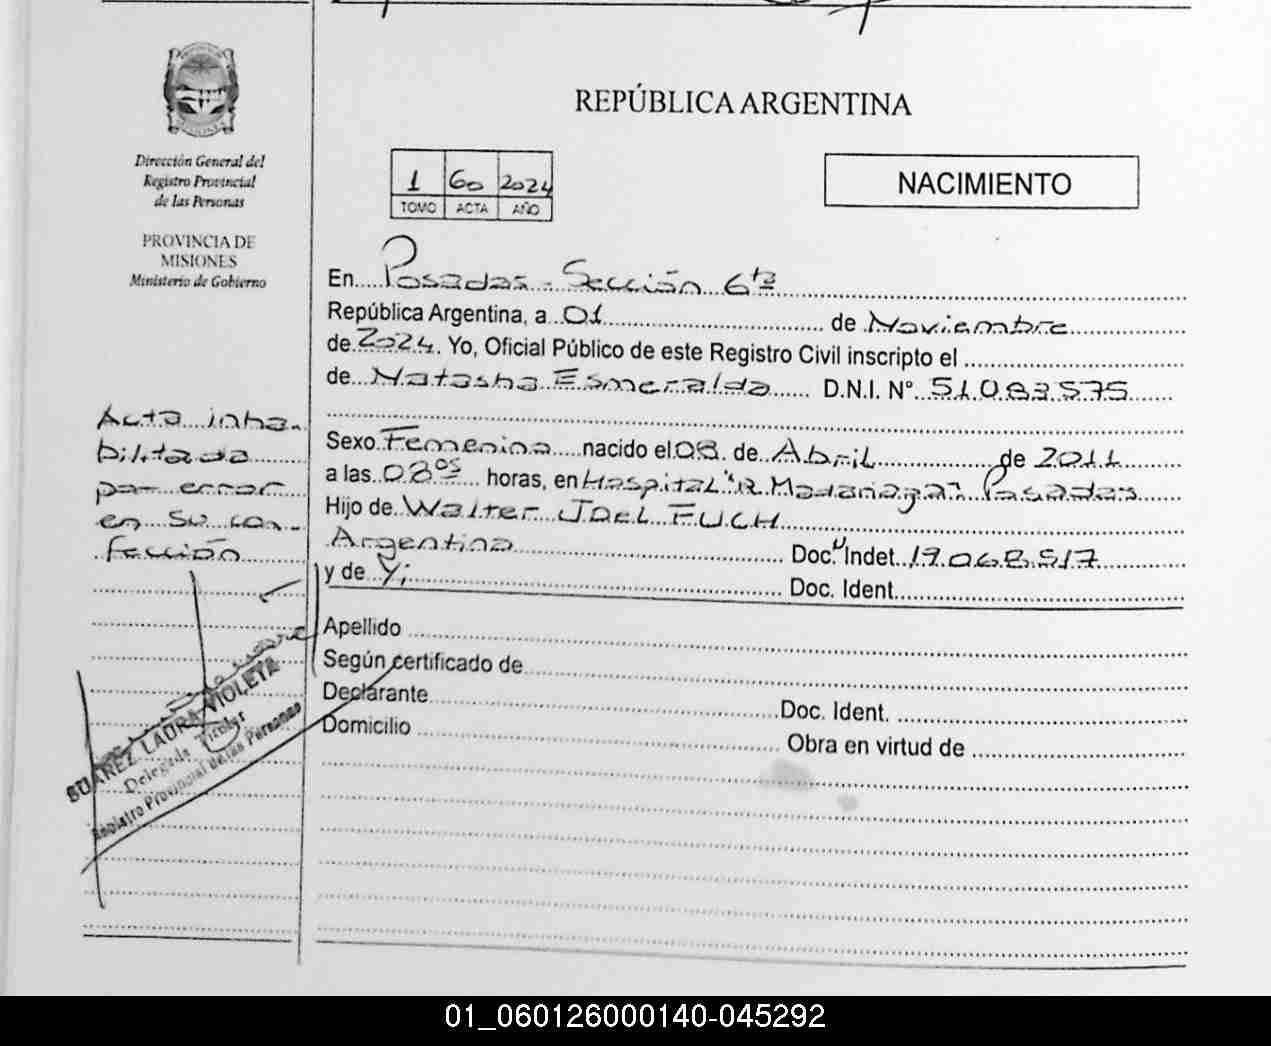 REPÚBLICA ARGENTINA
Dirección General del
Registro Provincial
de las Personas
PROVINCIA DE
MISIONES
Ministerio de Gobierno
1 60 2024
TOMO ACTA AÑO
NACIMIENTO
En Posadas - Sección 6ta
República Argentina, a 01 de Noviembre
de 2024. Yo, Oficial Público de este Registro Civil inscripto el
de Natasha Esmeralda D.N.I. N° 51.083.575
Sexo Femenino nacido el 08 de Abril de 2011
a las 08os horas, en Hospital "R. Madariaga". Posadas
Hijo de Walter Joel FUCH
Argentino Doc. Indet. 19.068.517
y de Y;
Doc. Ident.
Acta inha-
bilitada
por error
en su con-
fección
Apellido
Según certificado de
Declarante Doc. Ident.
Domicilio Obra en virtud de
SUAREZ LAURA VIOLETA
Delegada Titular
Registro Provincial de las Personas
01_060126000140-045292